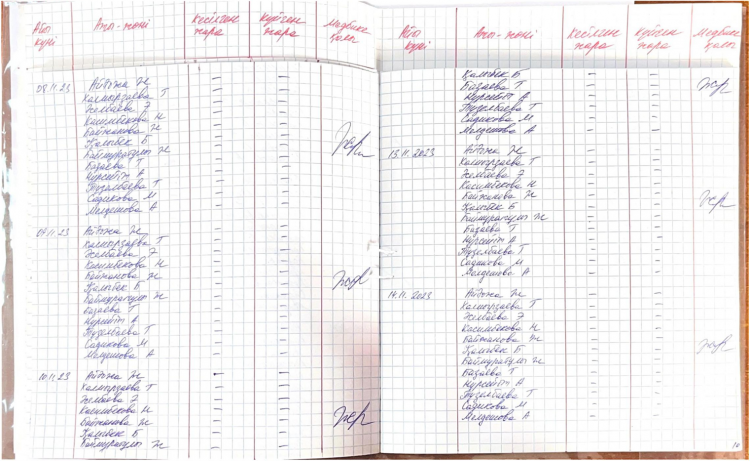 Айы күні Аты-жөні Кесілген жара Күйген жара Медбике қолы
08.11.23 Айдожа Ж — —
Калмырзаева Т — —
Желбаева Э — —
Касимбекова Н — —
Байжанова Ж — —
Қалыбек Б — —
Баймуратұлы Ж — —
Базаева Т — —
Нурсейіт А — —
Тузелбаева Т — —
Садикова М — —
Молдешова А — —
09.11.23 Айдожа Ж — —
Калмырзаева Т — —
Желбаева Э — —
Касимбекова Н — —
Байжанова Ж — —
Қалыбек Б — —
Баймуратұлы Ж — —
Базаева Т — —
Нурсейіт А — —
Тузелбаева Т — —
Садикова М — —
Молдешова А — —
10.11.23 Айдожа Ж — —
Калмырзаева Т — —
Желбаева Э — —
Касимбекова Н — —
Байжанова Ж — —
Қалыбек Б — —
Баймуратұлы Ж — —
Айы күні Аты-жөні Кесілген жара Күйген жара Медбике қолы
Қалыбек Б — —
Базаева Т — —
Нурсейіт А — —
Тузелбаева Т — —
Садикова М — —
Молдешова А — —
13.11.2023 Айдожа Ж — —
Калмырзаева Т — —
Желбаева Э — —
Касимбекова Н — —
Байжанова Ж — —
Қалыбек Б — —
Баймуратұлы Ж — —
Базаева Т — —
Нурсейіт А — —
Тузелбаева Т — —
Садикова М — —
Молдешова А — —
14.11.2023 Айдожа Ж — —
Калмырзаева Т — —
Желбаева Э — —
Касимбекова Н — —
Байжанова Ж — —
Қалыбек Б — —
Баймуратұлы Ж — —
Базаева Т — —
Нурсейіт А — —
Тузелбаева Т — —
Садикова М — —
Молдешова А — —